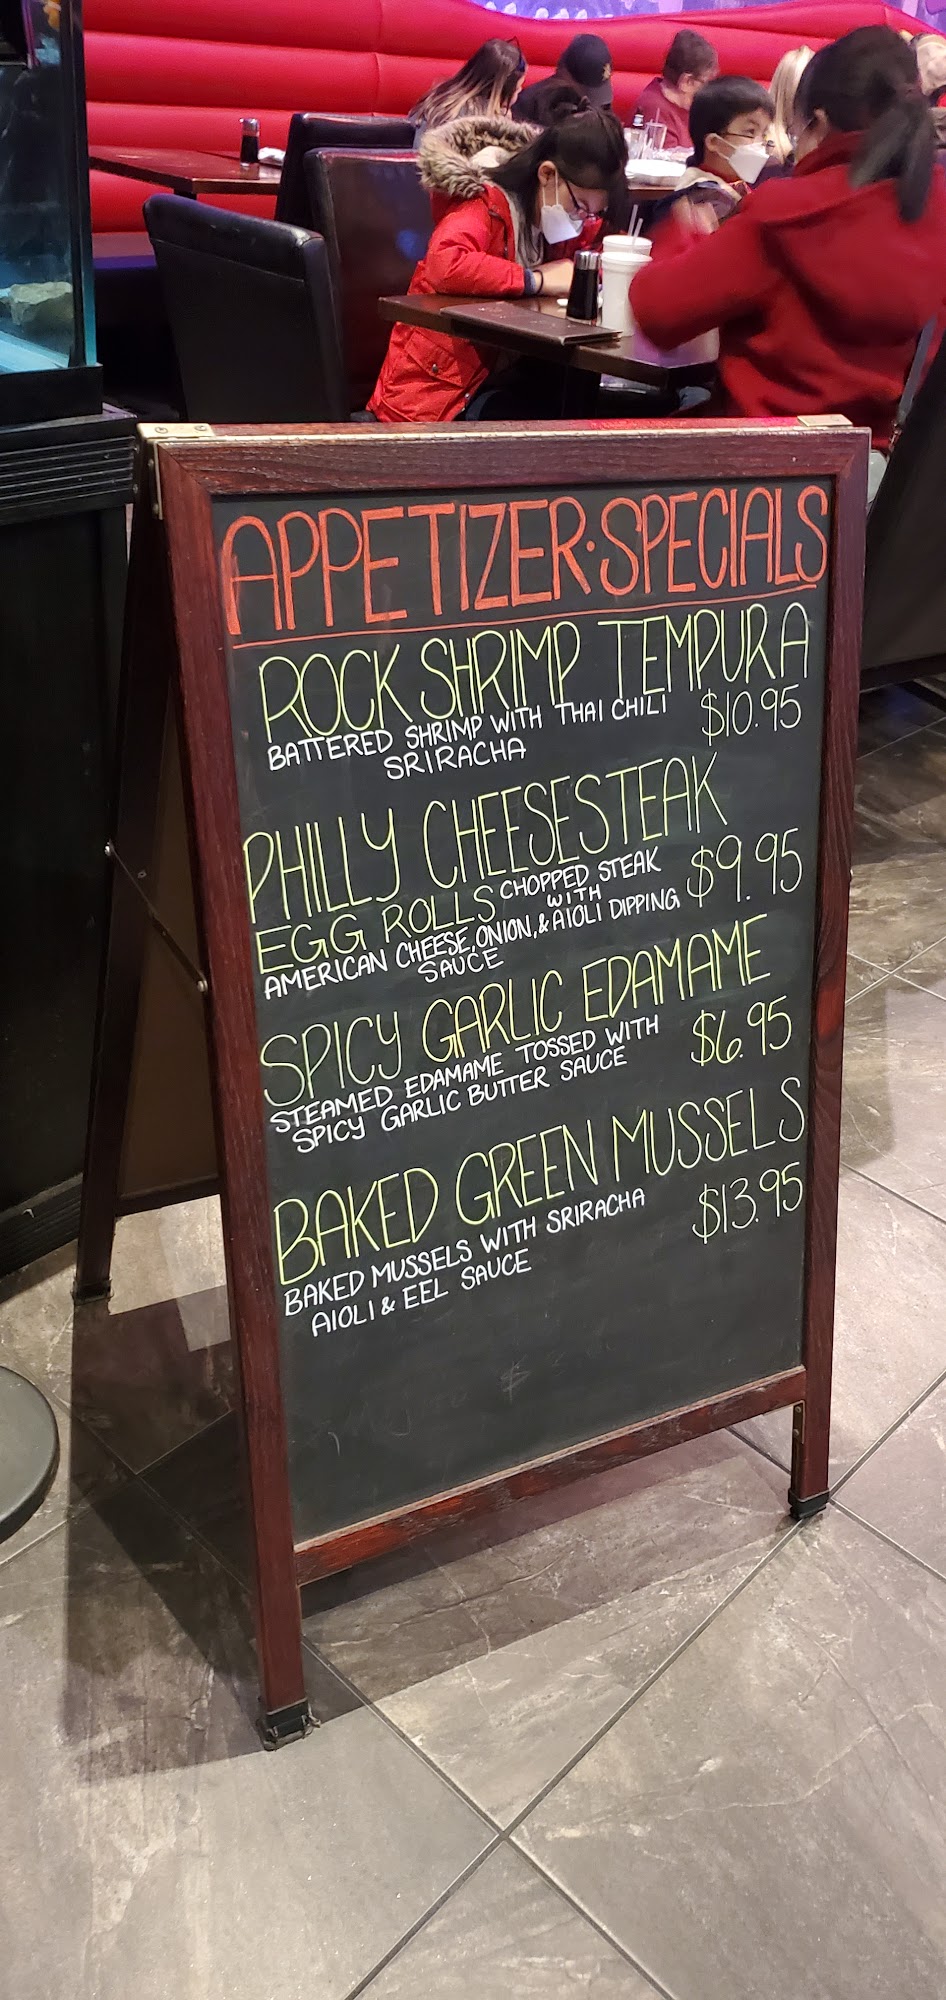 APPETIZER·SPECIALS
ROCK SHRIMP TEMPURA
BATTERED SHRIMP WITH THAI CHILI $10.95
SRIRACHA
PHILLY CHEESESTEAK
EGG ROLLS CHOPPED STEAK $9.95
WITH
AMERICAN CHEESE, ONION, & AIOLI DIPPING
SAUCE
SPICY GARLIC EDAMAME
STEAMED EDAMAME TOSSED WITH $6.95
SPICY GARLIC BUTTER SAUCE
BAKED GREEN MUSSELS
BAKED MUSSELS WITH SRIRACHA $13.95
AIOLI & EEL SAUCE